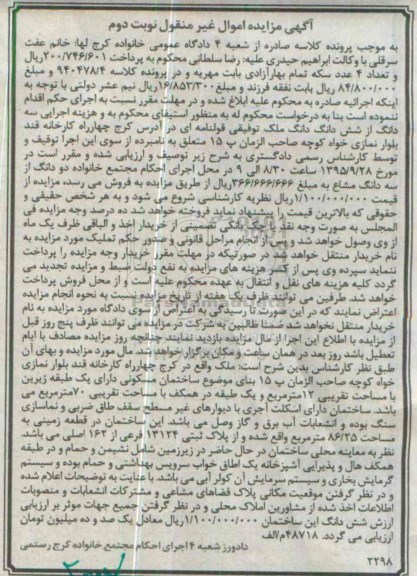 آگهی مزایده اموال غیر منقول نوبت دوم
به موجب پرونده کلاسه صادره از شعبه ۴ دادگاه عمومی خانواده کرج لها: خانم عفت
سرقلی با وکالت ابراهیم حیدری علیه: رضا سلطانی محکوم به پرداخت ۲۰۰/۷۴۶/۶۰۱ریال
و تعداد ۴ عدد سکه تمام بهارآزادی بابت مهریه و در پرونده کلاسه ۹۴۰۴۷۸/۴ و مبلغ
۸۴/۸۰۰/۰۰۰ ریال بابت نفقه فرزند و مبلغ۱۶/۸۵۳/۳۰۰ریال نیم عشر دولتی با توجه به
اینکه اجرائیه صادره به محکوم علیه ابلاغ شده و در مهلت مقرر نسبت به اجرای حکم اقدام
ننموده است بنا به درخواست محکوم له به منظور استیفای محکوم به و هزینه اجرایی سه
دانگ از شش دانگ دانگ ملک توقیفی قولنامه ای در آدرس کرج چهارراه کارخانه قند
بلوار نمازی خواه کوچه صاحب الزمان پ ۱۵ متعلق به نامبرده از سوی این اجرا توقیف و
توسط کارشناس رسمی دادگستری به شرح زیر توصیف و ارزیابی شده و مقرر است در
مورخ ۱۳۹۵/۹/۲۸ ساعت ۸/۳۰ الی ۹ در محل اجرای احکام مجتمع خانواده دو دانگ از
سه دانگ مشاع به مبلغ ۳۶۶/۶۶۶/۶۶۶ریال از طریق مزایده به فروش می رسد، مزایده از
قیمت ۱/۱۰۰/۰۰۰/۰۰۰ریال نظریه کارشناسی شروع می شود و به هر شخص حقیقی و
حقوقی که بالاترین قیمت را پیشنهاد نماید فروخته خواهد شد ده درصد وجه مزایده فی
المجلس به صورت وجه نقد یا چک بانکی تضمینی از خریدار اخذ و الباقی ظرف یک ماه
از وی وصول خواهد شد و پس از انجام مراحل قانونی و صدور حکم تملیک مورد مزایده به
نام خریدار منتقل خواهد شد در صورتیکه در مهلت مقرر خریدار وجه مزایده را پرداخت
ننماید سپرده وی پس از کسر هزینه های مزایده به نفع دولت ضبط و مزایده تجدید می
گردد کلیه هزینه های نقل و انتقال به عهده محکوم علیه است و از محل فروش پرداخت
خواهد شد. طرفین می توانند ظرف یک هفته از تاریخ مزایده نسبت به نحوه انجام مزایده
اعتراض نمایند که در این صورت تا رسیدگی به اعتراض از سوی دادگاه مورد مزایده به نام
خریدار منتقل نخواهد شد ضمنا طالبین به شرکت در مزایده می توانند ظرف پنج روز قبل
از مزایده با اطلاع این اجرا از مال مزایده بازدید نمایند چنانچه روز مزایده مصادف با ایام
تعطیل باشد روز بعد در همان ساعت و مکان برگزار خواهد شد. مال مورد مزایده و بهای آن
طبق نظر کارشناس بدین شرح است: ملک واقع در کرج چهارراه کارخانه قند بلوار نمازی
خواه کوچه صاحب الزمان پ ۱۵ بنای موضوع ساختمان مسکونی دارای یک طبقه زیرین
با مساحت تقریبی ۱۲مترمربع و یک طبقه در همکف با مساحت تقریبی ۷۰مترمربع می
باشد. ساختمان دارای اسکلت آجری با دیوارهای غیر مسطح سقف طاق ضربی و نماسازی
سنگ بوده و انشعابات آب برق و گاز وصل می باشد. این ساختمان در قطعه زمینی به
مساحت ۸۶/۲۵ مترمربع واقع شده و از پلاک ثبتی ۱۳۱۲۴ فرعی از ۱۶۲ اصلی می باشد.
نظر به معاینه محلی ساختمان در حال حاضر در زیرزمین شامل نشیمن و حمام و در طبقه
همکف هال و پذیرایی آشپزخانه یک اطاق خواب سرویس بهداشتی و حمام بوده و سیستم
گرمایش بخاری و سیستم سرمایش آن کولر آبی می باشد. با عنایت به توضیحات اعلام شده
و در نظر گرفتن موقعیت مکانی پلاک فضاهای مشاعی و مشترکات انشعابات و منصوبات
اطلاعات اخذ شده از مشاورین املاک محلی و در نظر گرفتن جمیع جهات موثر بر ارزیابی
ارزش شش دانگ این ساختمان ۱/۱۰۰/۰۰۰/۰۰۰ریال معادل یک صد و ده میلیون تومان
ارزیابی می گردد. ۴۸۷۱۸م/الف
دادورز شعبه ۴ اجرای احکام مجتمع خانواده کرج رستمی
۲۲۹۸